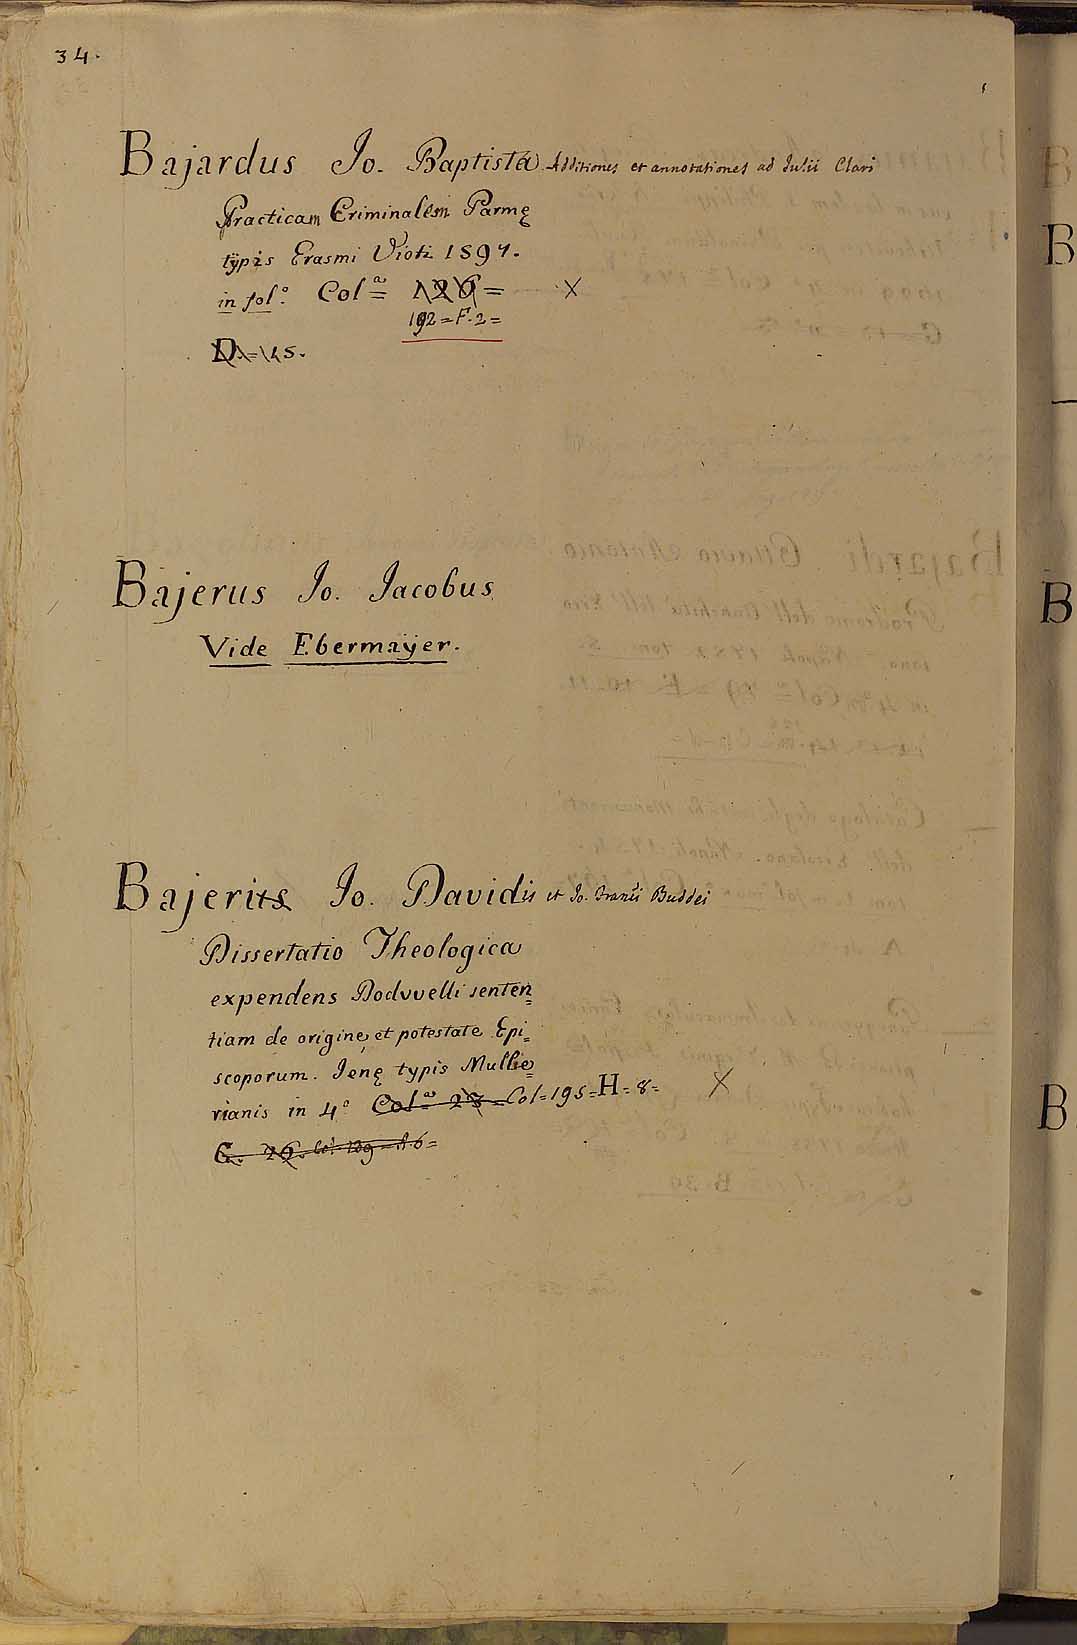 34.
Bajardus Jo. Baptista Additiones et annotationes ad Julii Clari
Practicam Criminalem Parmę
typis Erasmi Vioti 1597.
in fol.º Col.ª 126 = X
192 = F. 2 =
D. = 15.
Bajerus Jo. Jacobus
Vide Ebermaÿer.
Bajerus Jo. Davidis et Jo. Franci Buddei
Dissertatio Theologica
expendens Dodvvelli senten=
tiam de origine, et potestate Epi=
scoporum. Jenę typis Mulle=
rianis in 4º Col.ª 23 = Col = 195 = H = 8 = X
G. 26.